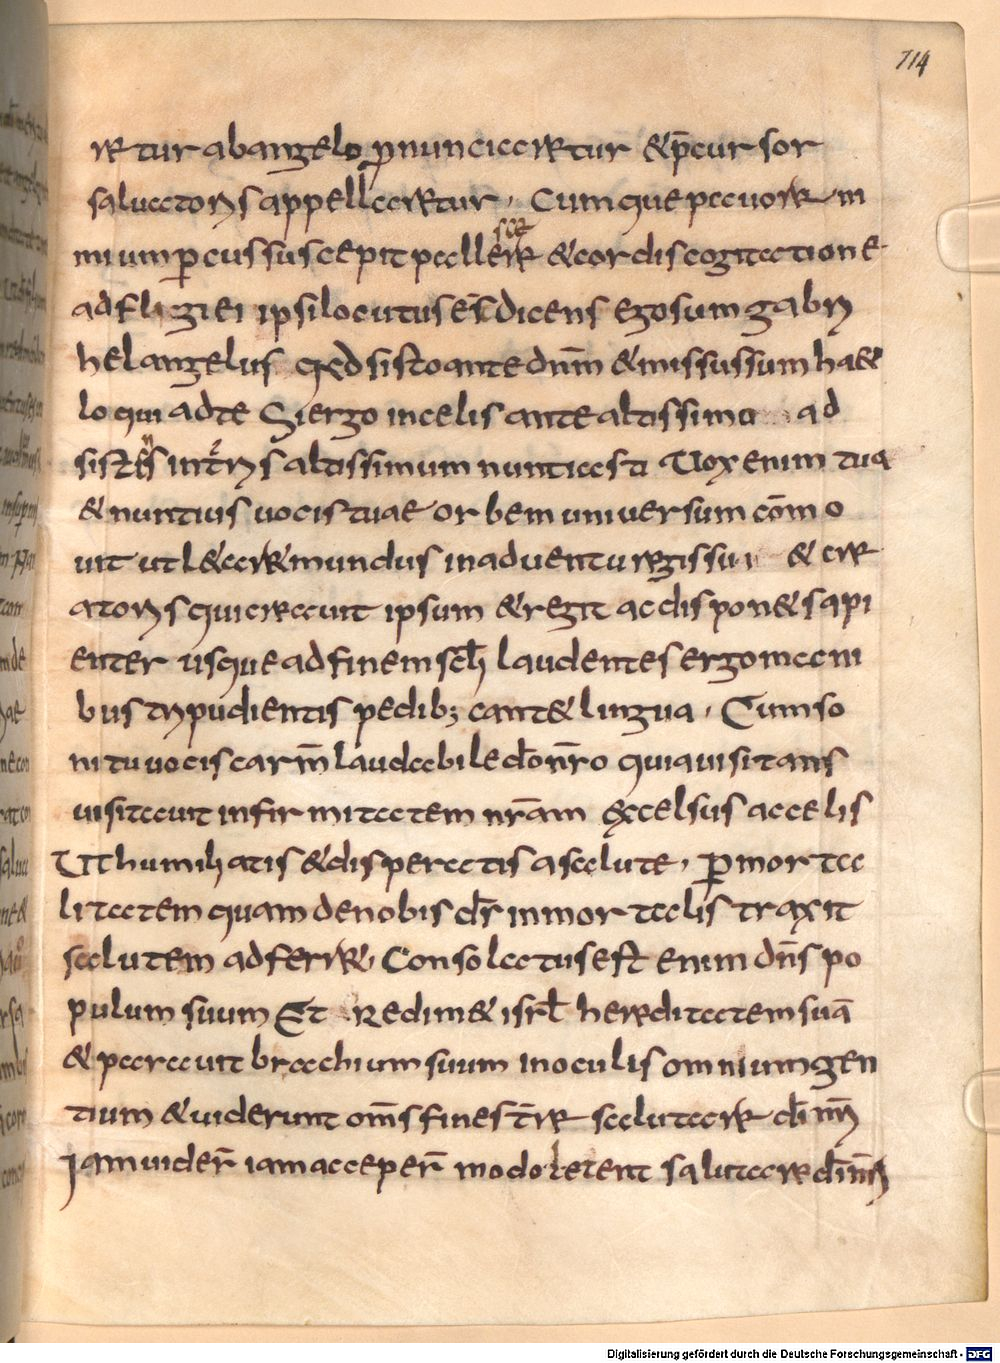 114
retur ab angelo pronunciaretur & p̄cursor
saluatoris appellaretur · Cumque pauore ni
mium percussus cepit pallescere & cordis cogitatione
adfligi ei ipsi locutus est dicens ego sum gabri
hel angelus qui adsisto ante dnm̄ & missus sum haec
loqui ad te Si ergo in celis ante altissimu ad
sistens in terris altissimum nuntiasti Uox enim tua
& nuntius uocis tuae orbem uniuersum com̄o
uit ut l&ar& mundus in aduentu regis sui & cre
atoris qui creauit ipsum & regit ac dispon& sapi
enter usque ad finem scłi laudentes ergo mani
bus tripudientis pedib; cant& lingua · Cum so
nitu uocis carm̄ laudabile dō nrō quia uisitans
uisitauit infirmitatem nrām excelsus a celis
Ut humiliatis & disperatis a salute · per morta
litatem quam de nobis dš in mortalis traxit
salutem adferre· Consolatus est enim dn̄s po
pulum suum Et Redim& isrł hereditatem suā
& parauit brachium suum in oculis omnium gen
tium & uiderunt om̄s fines terre salutare dī nr̄i
Iam uider̄ iam acceper̄ modo letent salutare dī nr̄i
Digitalisierung gefördert durch die Deutsche Forschungsgemeinschaft - DFG